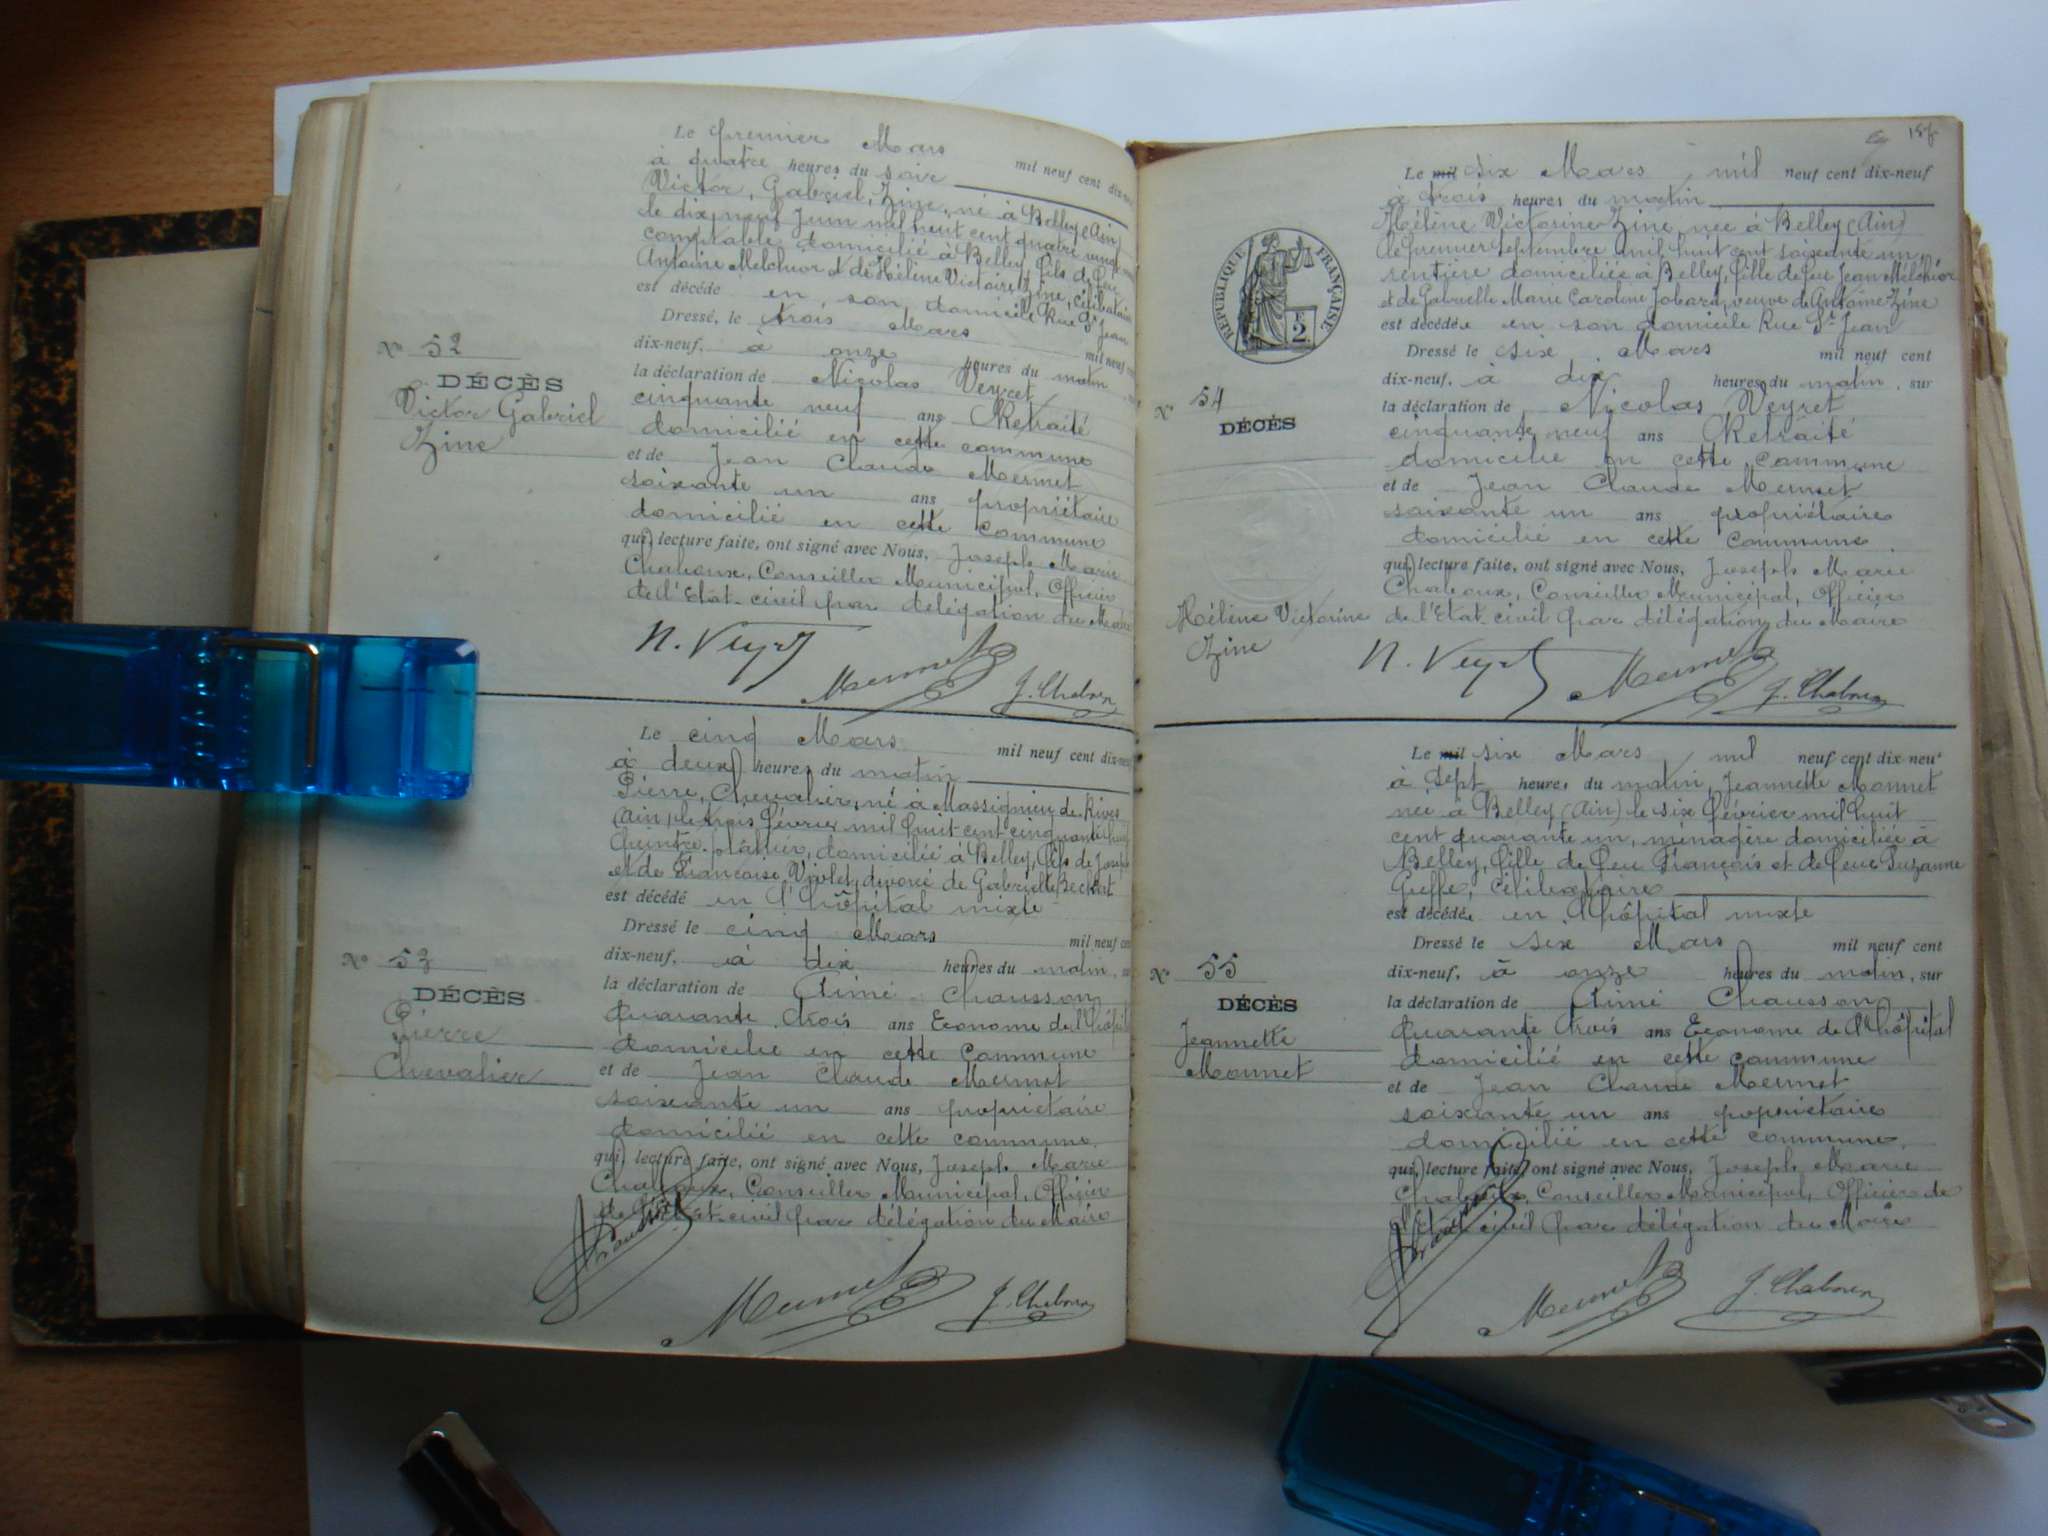 Le premier Mars mil neuf cent dix-
à quatre heures du soir
Victor, Gabriel, Zine, né à Belley (Ain)
le dix neuf Juin mil huit cent quatre vingt
comptable domicilié à Belley, fils de feu
Antoine Melchior et de Hélène Victoire Zine, célibataire
est décédé en son domicile Rue St Jean
Dressé, le trois Mars mil neuf
dix-neuf, à onze heures du matin
la déclaration de Nicolas Veyret
cinquante neuf ans Retraité
domicilié en cette commune
et de Jean Claude Mermet
soixante un ans propriétaire
domicilié en cette commune
qui, lecture faite, ont signé avec Nous, Joseph Marie
Chaboux, Conseiller Municipal, Officier
de l'Etat-civil par délégation du Maire
N° 52
DÉCÈS
Victor Gabriel
Zine
N. Veyret
Mermet
J. Chaboux
Le cinq Mars mil neuf cent dix-neuf
à deux heures du matin
Pierre, Chevalier, né à Massignieu de Rives
(Ain) le trois février mil huit cent cinquante
peintre-plâtrier, domicilié à Belley, fils de Joseph
et de Françoise Violet, divorcé de Gabrielle
est décédé en l'hôpital mixte
Dressé le cinq Mars mil neuf cent
dix-neuf, à dix heures du matin, sur
la déclaration de Aimé Chausson
quarante trois ans Econome de l'hôpital
domicilié en cette commune
et de Jean Claude Mermet
soixante un ans propriétaire
domicilié en cette commune,
qui, lecture faite, ont signé avec Nous, Joseph Marie
Chaboux, Conseiller Municipal, Officier
de l'Etat-civil par délégation du Maire
N° 53
DÉCÈS
Pierre
Chevalier
Mermet
J. Chaboux
RÉPUBLIQUE FRANÇAISE
2
Le mil six Mars mil neuf cent dix-neuf
à trois heures du matin
Hélène Victorine Zine, née à Belley (Ain)
le premier Septembre mil huit cent soixante un,
rentière domiciliée à Belley, fille de feu Jean Melchior
et de Gabrielle Marie Caroline Jobard, veuve de Antoine Zine
est décédée en son domicile Rue St Jean
Dressé le six Mars mil neuf cent
dix-neuf, à dix heures du matin, sur
la déclaration de Nicolas Veyret
cinquante neuf ans Retraité
domicilié en cette commune
et de Jean Claude Mermet
soixante un ans propriétaire
domicilié en cette commune
qui, lecture faite, ont signé avec Nous, Joseph Marie
Chaboux, Conseiller Municipal, Officier
de l'Etat civil par délégation du Maire
N° 54
DÉCÈS
Hélène Victorine
Zine
N. Veyret
Mermet
J. Chaboux
Le mil six Mars mil neuf cent dix-neuf
à sept heures du matin, Jeannette Monnet
née à Belley (Ain) le six février mil huit
cent quarante un, ménagère domiciliée à
Belley, fille de feu François et de feue Suzanne
Guffe, Célibataire
est décédée en l'hôpital mixte
Dressé le six Mars mil neuf cent
dix-neuf, à onze heures du matin, sur
la déclaration de Aimé Chausson
quarante trois ans Econome de l'hôpital
domicilié en cette commune
et de Jean Claude Mermet
soixante un ans propriétaire
domicilié en cette commune,
qui, lecture faite, ont signé avec Nous, Joseph Marie
Chaboux, Conseiller Municipal, Officier de
l'Etat civil par délégation du Maire
N° 55
DÉCÈS
Jeannette
Monnet
Mermet
J. Chaboux